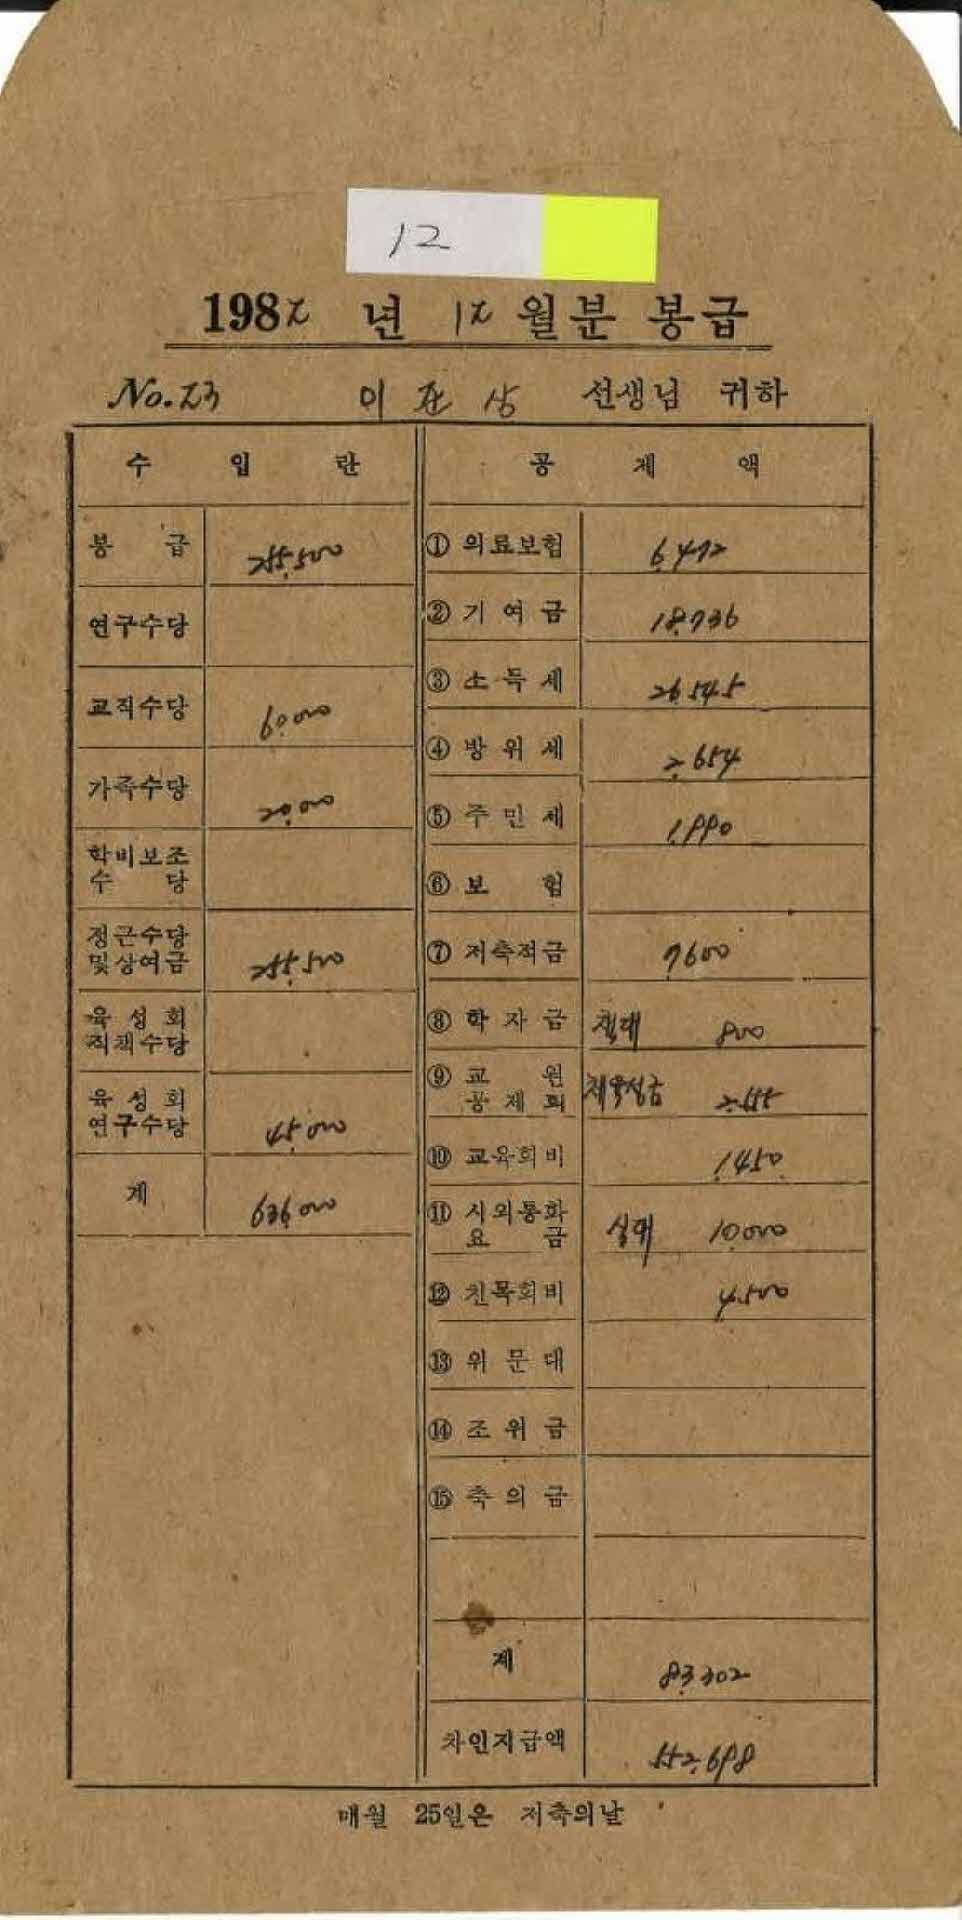 12
1982 년 12 월분 봉급
No. 23 이 선생님 귀하
수 입 란
봉 급 255,500
연구수당
교직수당 60,000
가족수당 20,000
학비보조
수 당
정근수당
및상여금 255,500
육성회
직책수당
육성회
연구수당 45,000
계 636,000
공 제 액
① 의료보험 6,472
② 기여금 18,736
③ 소득세 26,545
④ 방위세 2,654
⑤ 주민세 1,990
⑥ 보 험
⑦ 저축적금 7,600
⑧ 학자금 책대 800
⑨ 교 원
공제회 체육성금 2,555
⑩ 교육회비 1,450
⑪ 시외통화
요 금 10,000
⑫ 친목회비 4,500
⑬ 위문대
⑭ 조위금
⑮ 축의금
계 83,302
차인지급액 552,698
매월 25일은 저축의날